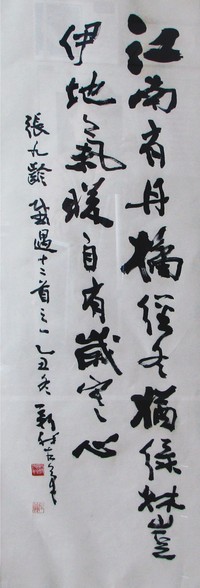 江南有丹橘經冬猶綠林豈
伊地氣暖自有歲寒心
張九齡感遇十二首之一乙丑冬